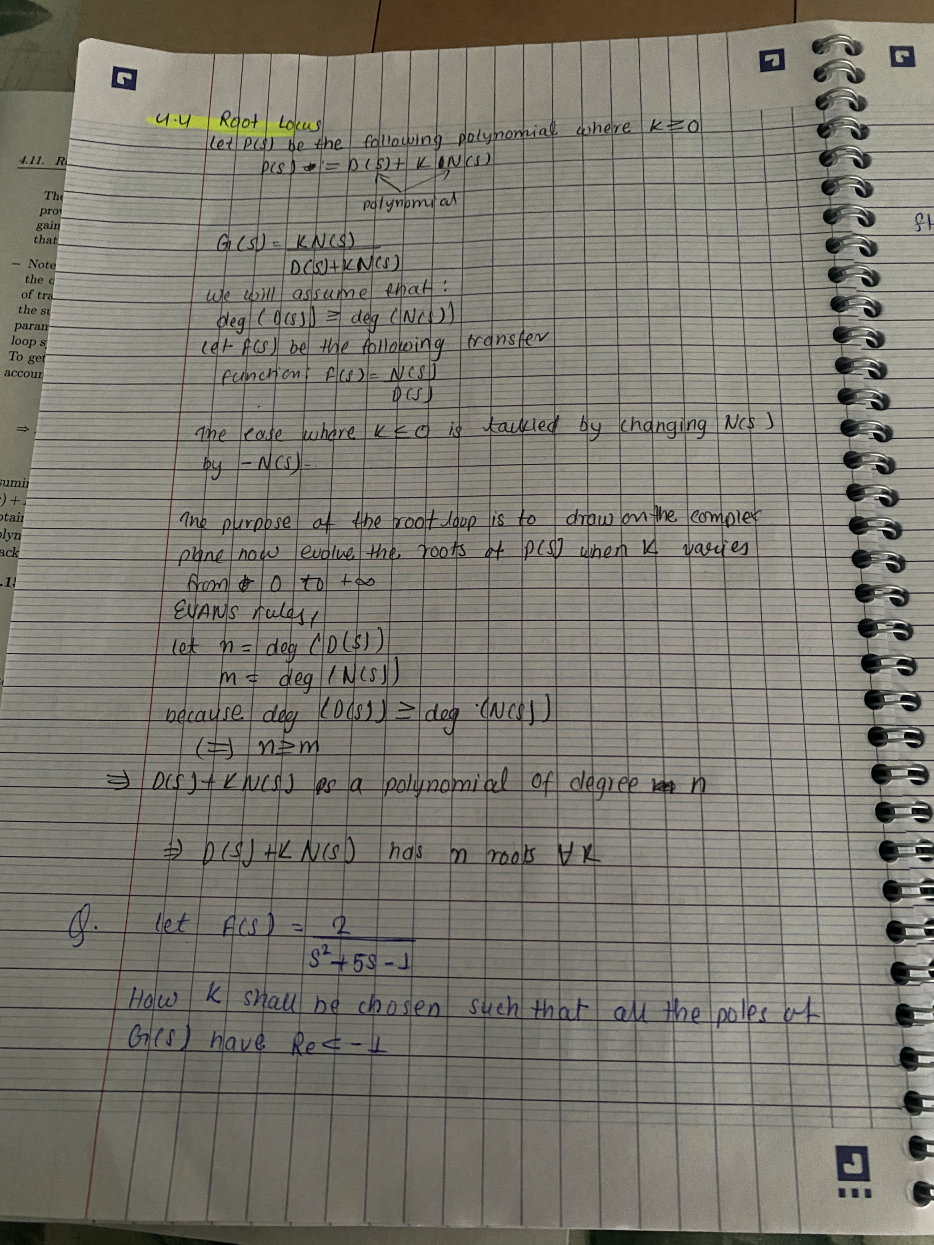 4.4 Root Locus
Let P(s) be the following polynomial where K≥0
P(s) := D(s)+ K N(s)
polynomial
G(s) = KN(s)
D(s)+KN(s)
we will assume that :
deg (D(s)) ≥ deg (N(s))
Let F(s) be the following transfer
function: F(s) = N(s)
D(s)
The case where K≤0 is tackled by changing N(s)
by -N(s)
The purpose of the root loop is to draw on the complex
plane how evolve the roots of P(s) when K varies
from 0 to +∞
EVANS rules,
let n = deg (D(s))
m = deg (N(s))
because deg (D(s)) ≥ deg (N(s))
(=) n≥m
⇒ D(s)+KN(s) is a polynomial of degree n
⇒ D(s)+K N(s) has n roots ∀K
Q. let F(s) = 2
s²+5s-1
How K shall be chosen such that all the poles of
G(s) have Re<-1
4.11. R
The
pro
gain
that
– Note
the
of tra
the
param
loop s
To ge
accou
⇒
sumi
) +
otai
olyn
ack